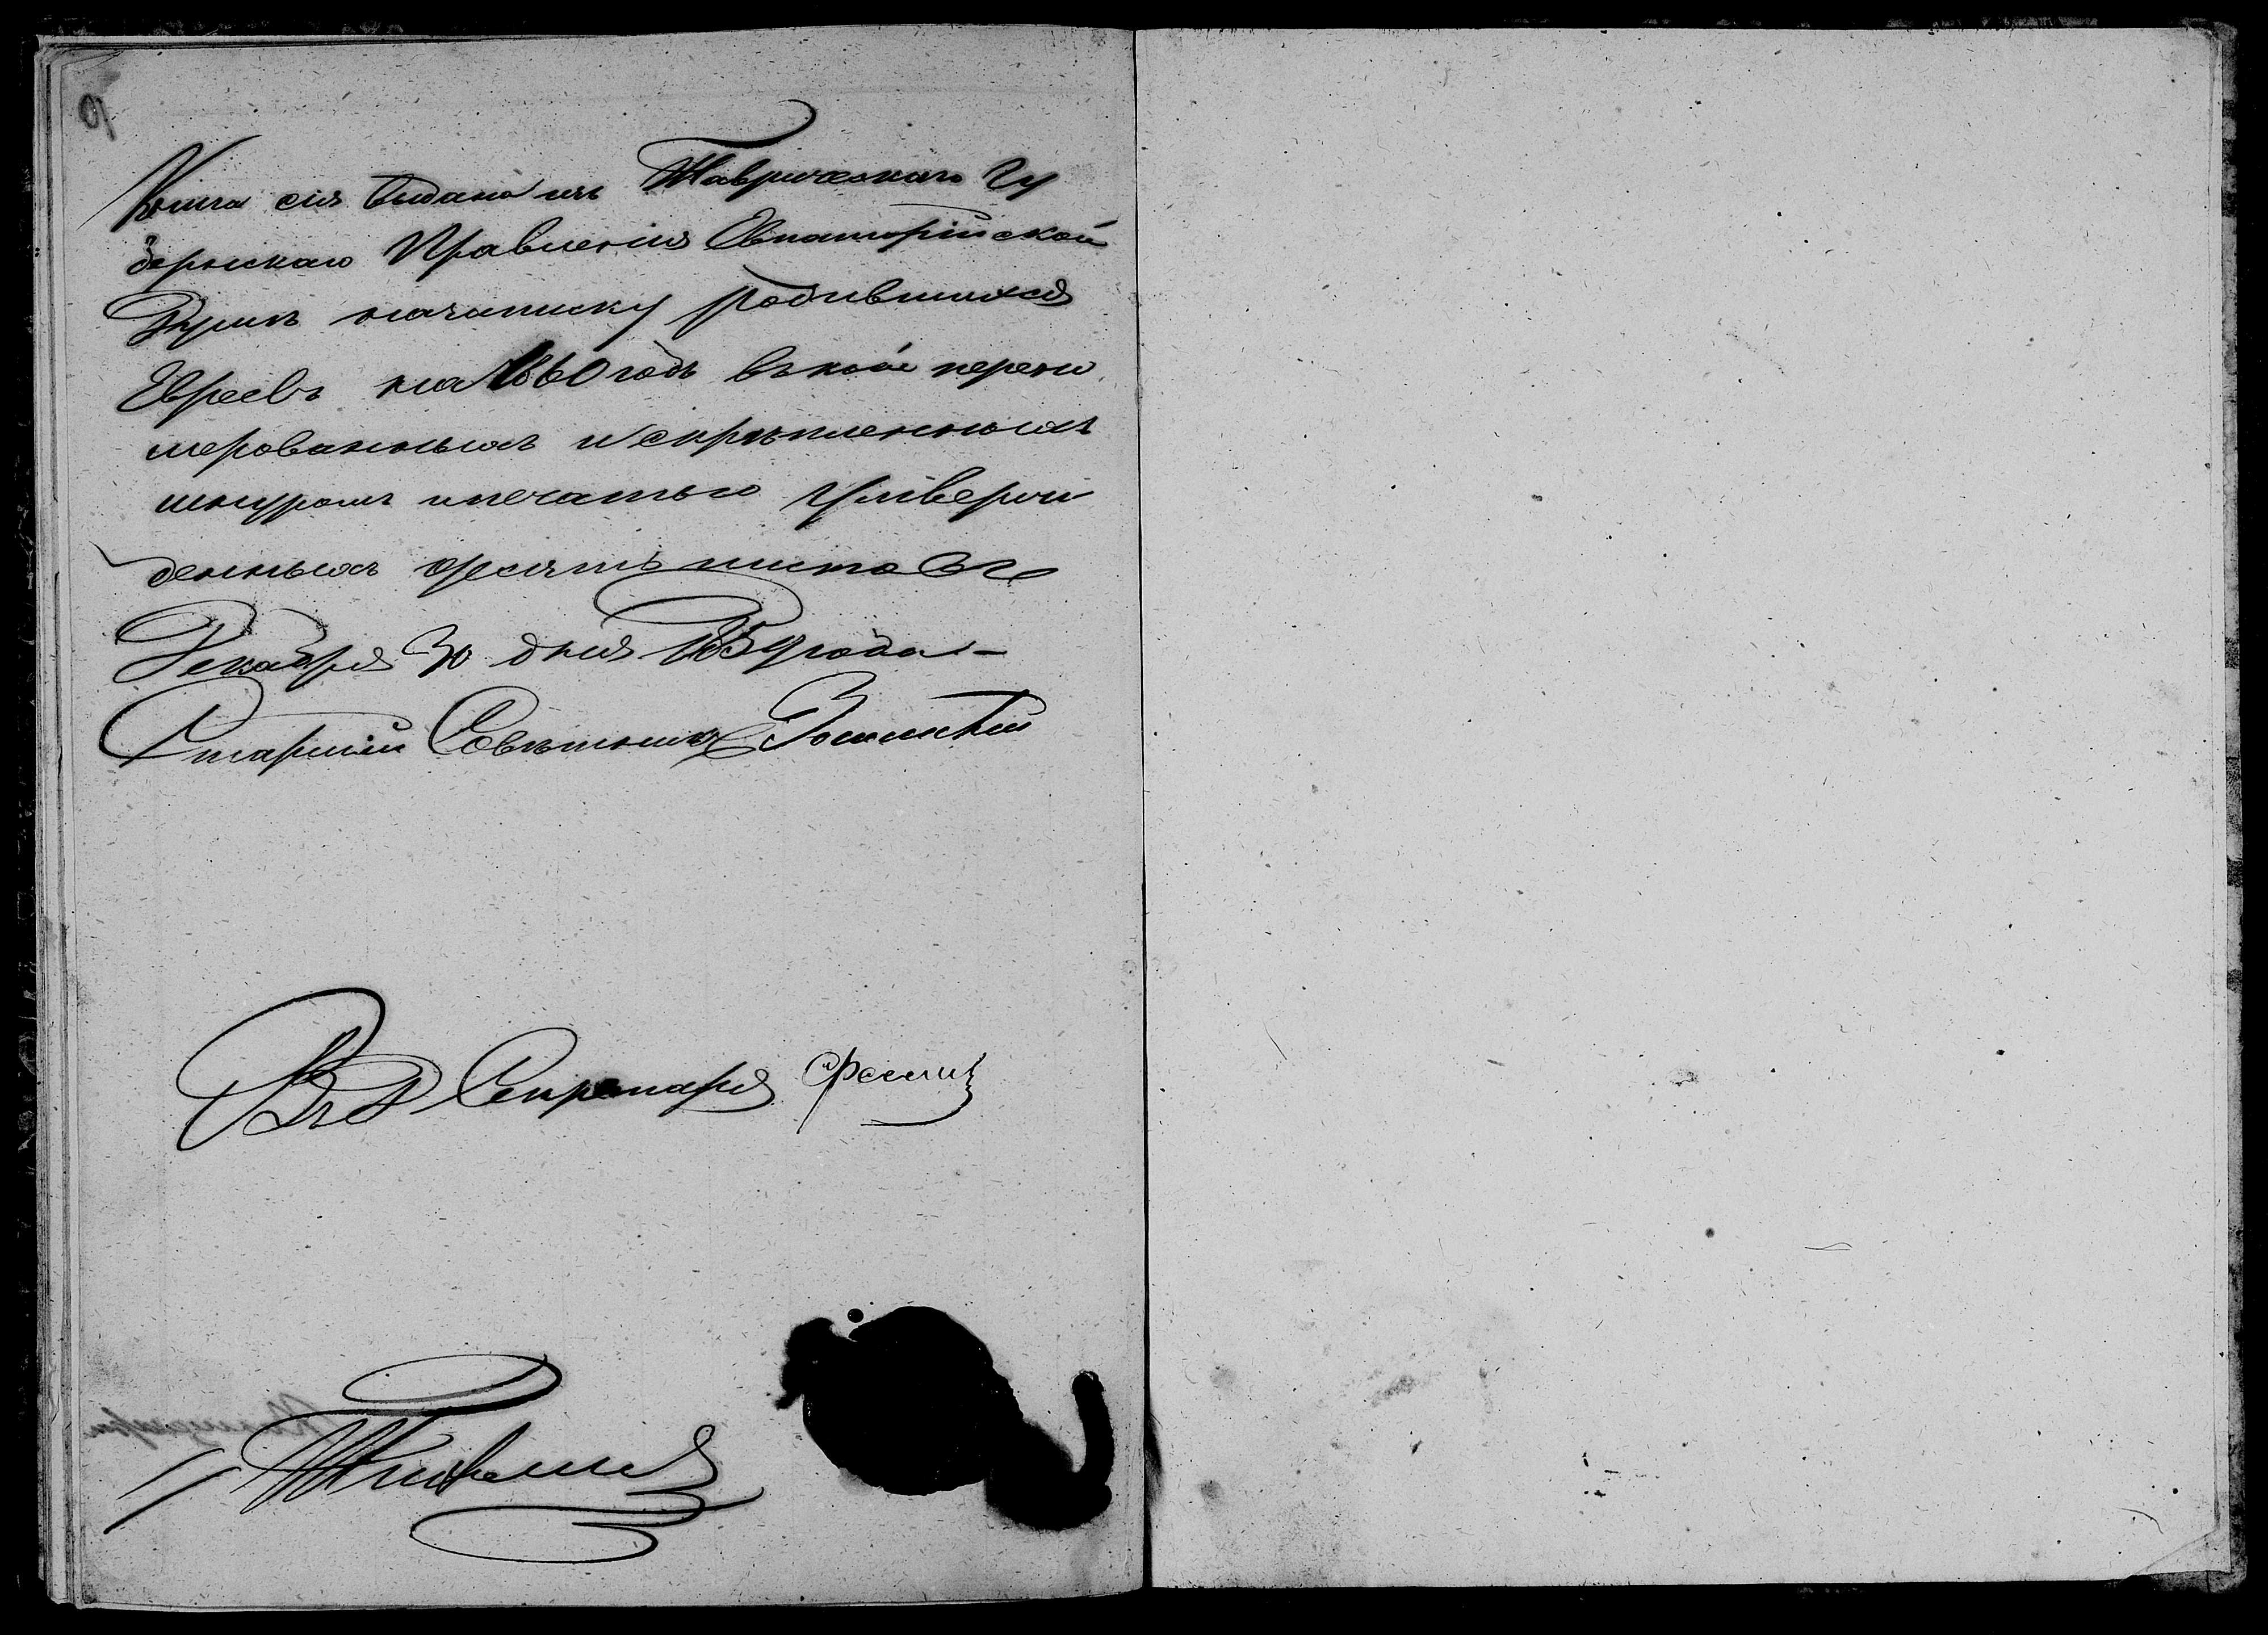 Книга сія выдана изъ Таврическаго Гу
бернскаго Правленія Евпаторійской
Думѣ на записку родившихся
Евреевъ на 1860 годъ въ коей перену
мерованныхъ и скрѣпленныхъ
шнуромъ и печатью утвержд
денныхъ десять листовъ
Декабря 30 дня 1859 года –
Старшій Совѣтникъ
Секретаря